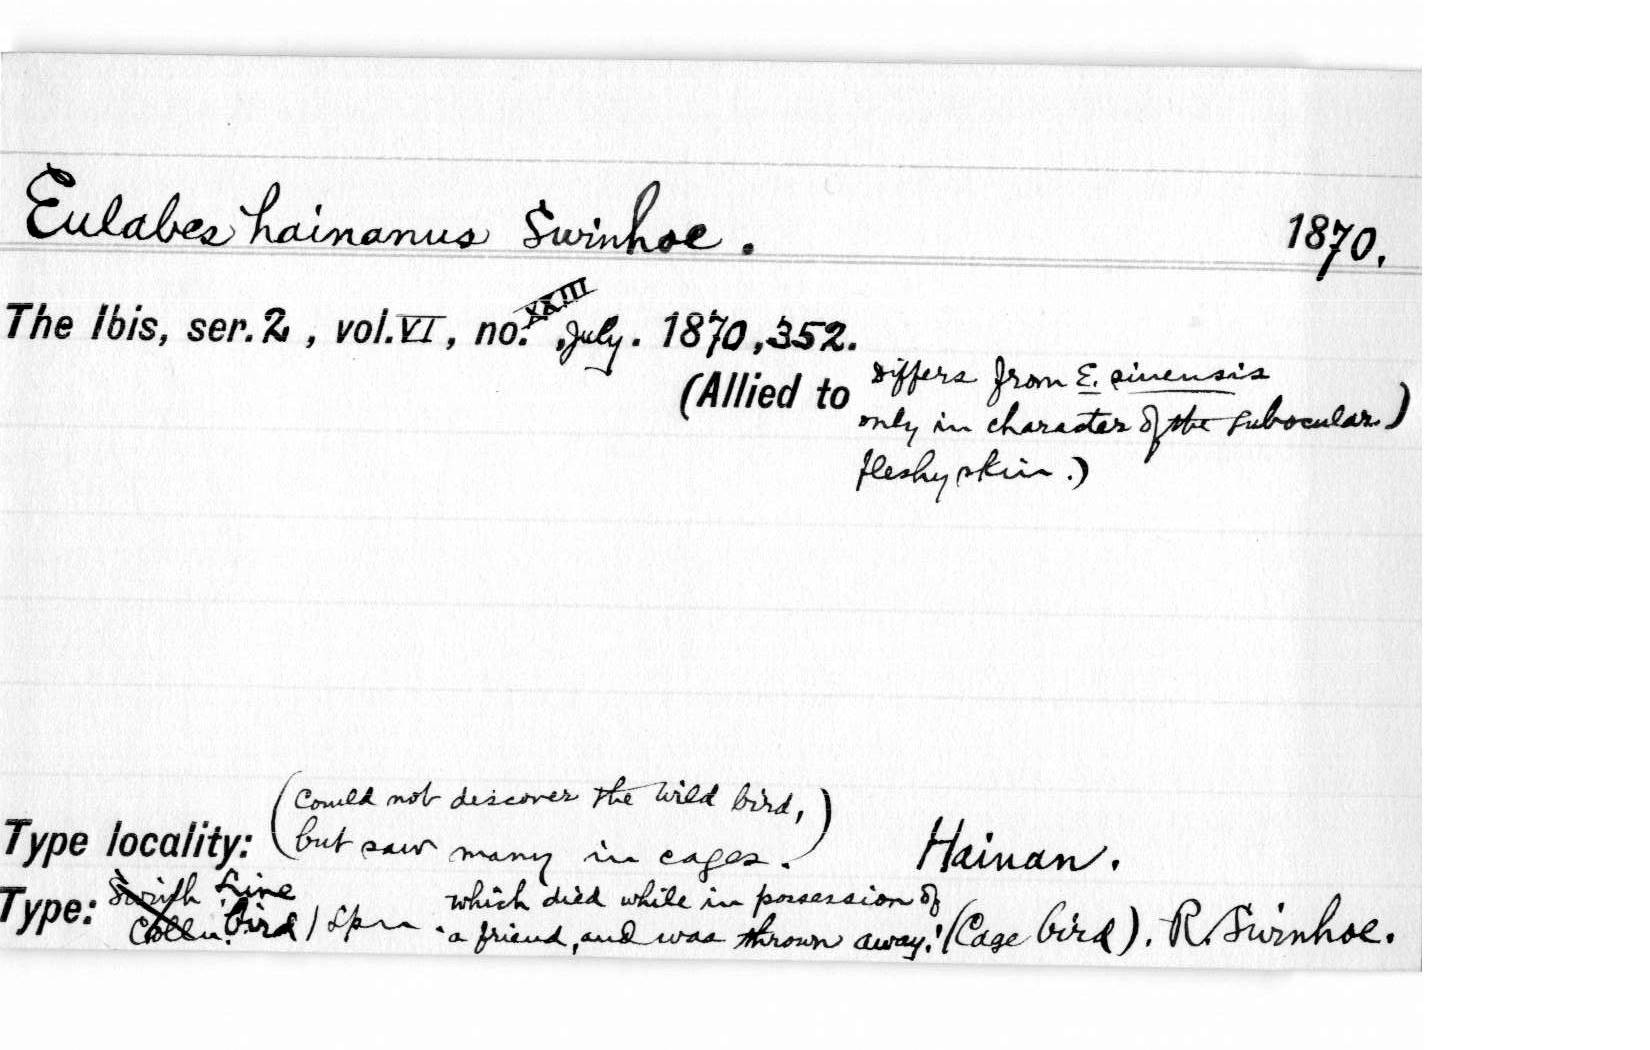 Eulabes hainanus Swinhoe. 1870.
The Ibis, ser. 2, vol. VI, no. XXIII, July. 1870, 352.
(Allied to Differs from E. sinensis
only in character of the subocular)
fleshy skin.)
(Could not discover the wild bird,
Type locality: but saw many in cages.) Hainan.
Type: fine which died while in possession of
Colln. bird / Spn "a friend, and was thrown away." (Cage bird). R. Swinhoe.